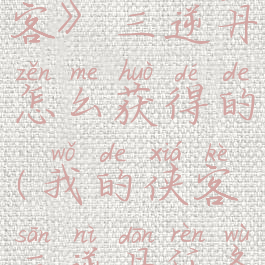 客》三逆丹
zěn me huò dé de
怎么获得的
wǒ de xiá kè
(我的侠客
sān nì dān rèn wù